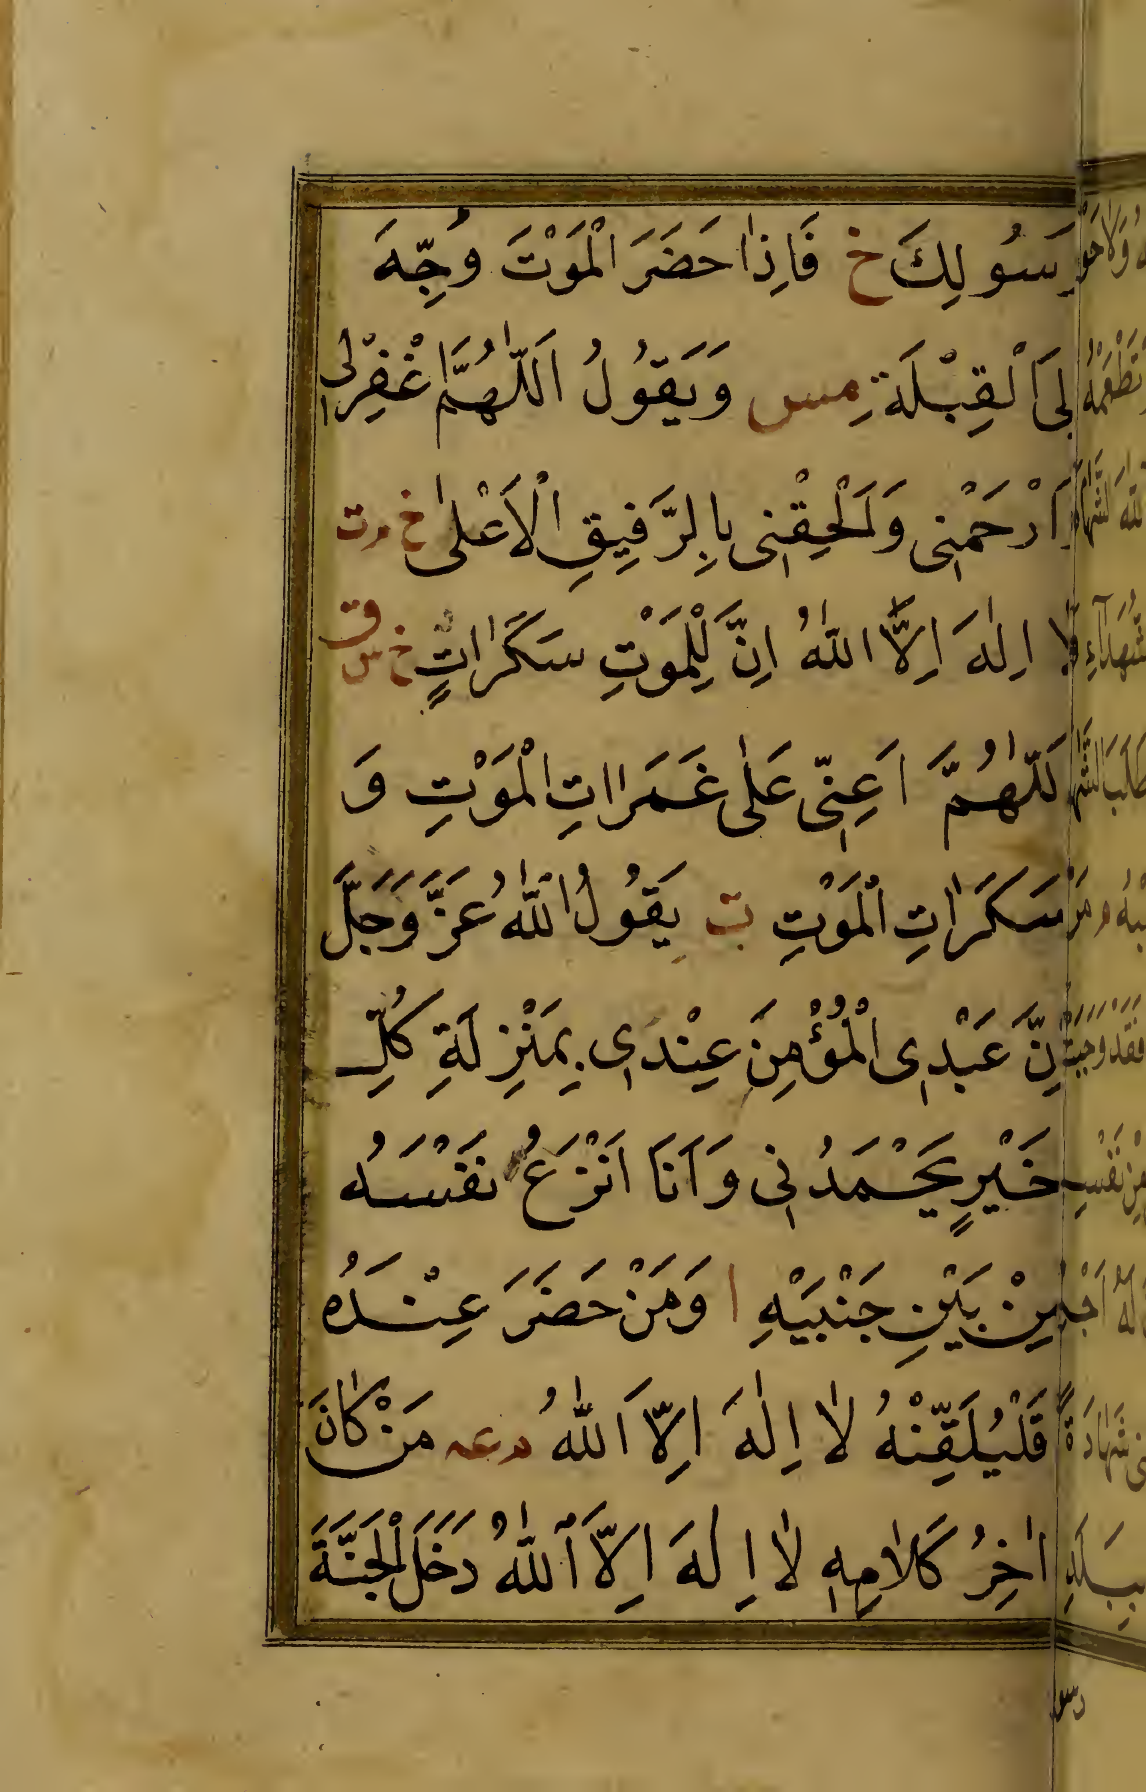 رَسُولِكَ خ فَاِذَا حَضَرَ الْمَوْتَ وُجِّهَ
اِلَى الْقِبْلَةِ مس وَيَقُولُ اَللّٰهُمَّ اغْفِرْلِى
وَارْحَمْنِى وَاَلْحِقْنِى بِالرَّفِيقِ الْاَعْلٰى خ م ت
لَا اِلٰهَ اِلَّا اللّٰهُ اِنَّ لِلْمَوْتِ سَكَرَاتٍ خ س ق
اَللّٰهُمَّ اَعِنِّى عَلٰى غَمَرَاتِ الْمَوْتِ وَ
سَكَرَاتِ الْمَوْتِ ت يَقُولُ اللّٰهُ عَزَّ وَجَلَّ
اِنَّ عَبْدِى الْمُؤْمِنَ عِنْدِى بِمَنْزِلَةِ كُلِّ
خَيْرٍ يَحْمَدُنِى وَاَنَا اَنْزَعُ نَفْسَهُ
مِنْ بَيْنِ جَنْبَيْهِ ا وَمَنْ حَضَرَ عِنْدَهُ
فَلْيُلَقِّنْهُ لَا اِلٰهَ اِلَّا اللّٰهُ م عه مَنْ كَانَ
اٰخِرُ كَلَامِهِ لَا اِلٰهَ اِلَّا اللّٰهُ دَخَلَ الْجَنَّةَ
رسو